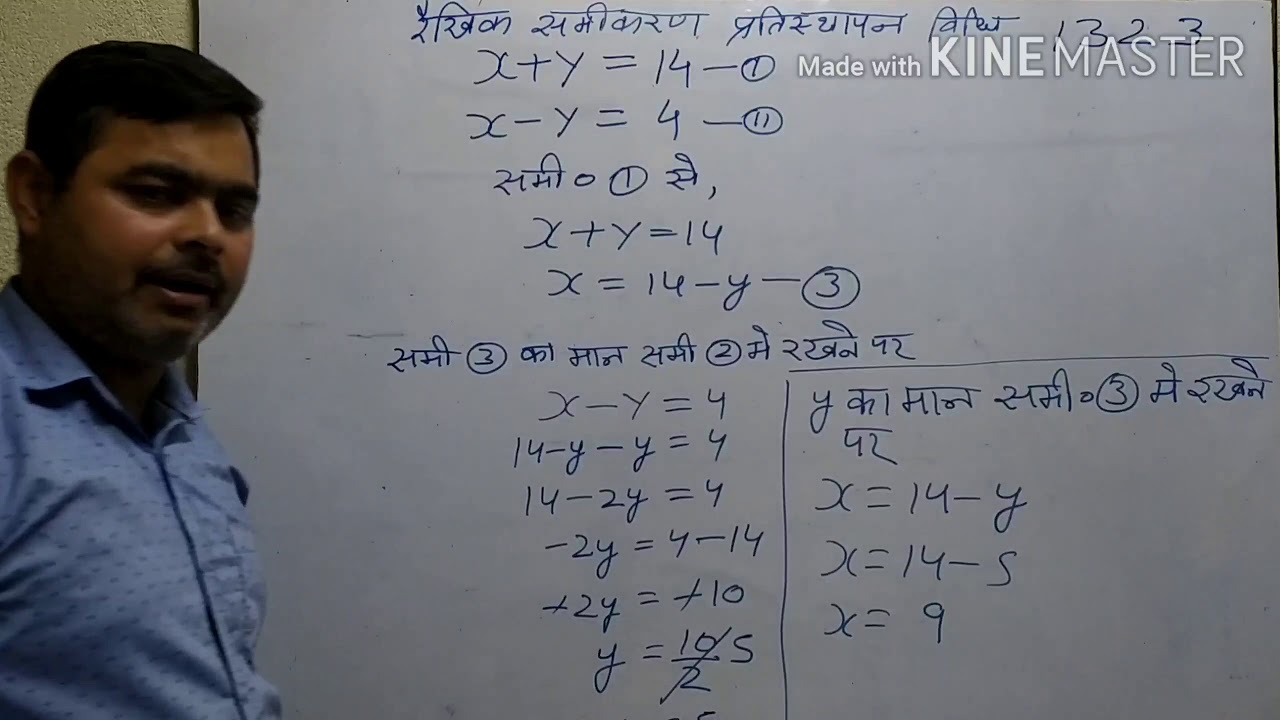 रैखिक समीकरण प्रतिस्थापन विधि 1 3 2 3
Made with KINEMASTER
x + y = 14 — ①
x − y = 4 — ⑪
समी० ① से,
x + y = 14
x = 14 − y — ③
समी ③ का मान समी ② मे रखने पर
x − y = 4
14 − y − y = 4
14 − 2y = 4
−2y = 4 − 14
+2y = +10
y = 10/2 5
y का मान समी० ③ मे रखने
पर
x = 14 − y
x = 14 − 5
x = 9